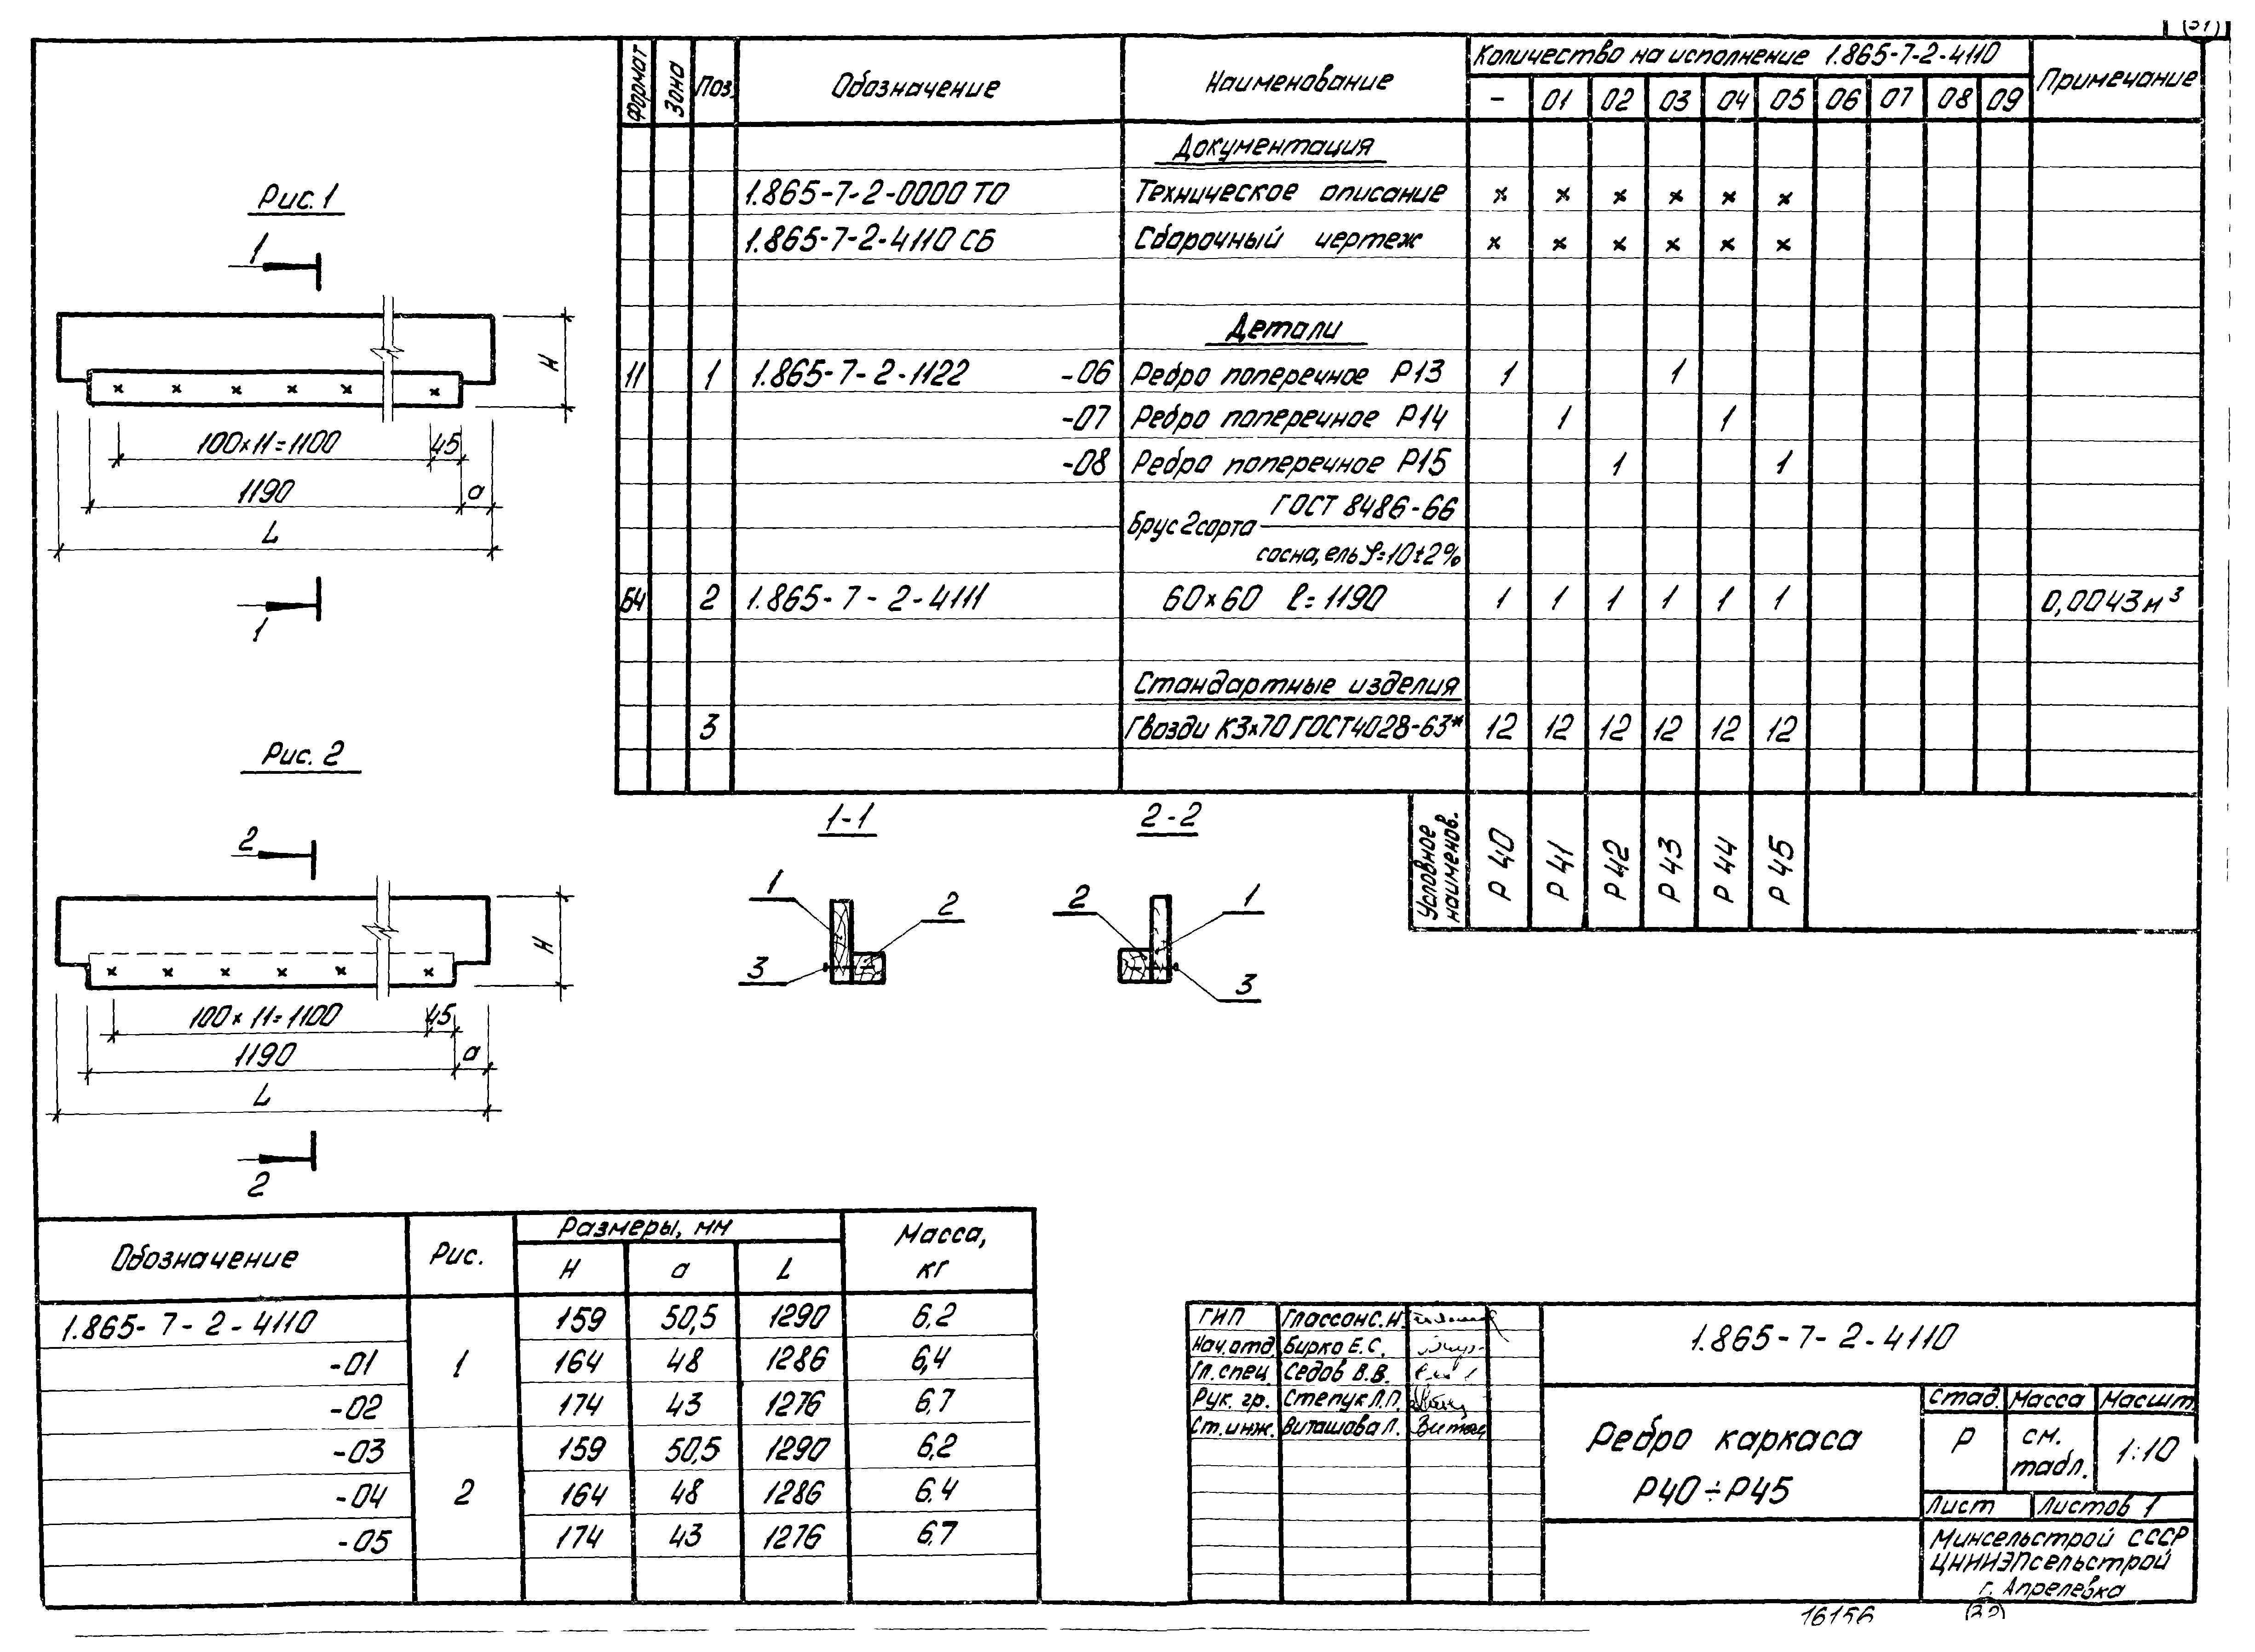 Рис. 1
1
100×11=1100
45
1190
а
L
Н
1
Рис. 2
2
100×11=1100
45
1190
а
L
Н
2
Формат Зона Поз. Обозначение Наименование Количество на исполнение 1.865-7-2-4110 Примечание
- 01 02 03 04 05 06 07 08 09
Документация
1.865-7-2-0000 ТО Техническое описание × × × × × ×
1.865-7-2-4110 СБ Сборочный чертеж × × × × × ×
Детали
11 1 1.865-7-2-1122 -06 Ребро поперечное Р13 1 1
-07 Ребро поперечное Р14 1 1
-08 Ребро поперечное Р15 1 1
ГОСТ 8486-66
Брус 2 сорта
сосна, ель φ=10±2%
БЧ 2 1.865-7-2-4111 60×60 ℓ=1190 1 1 1 1 1 1 0,0043 м³
Стандартные изделия
3 Гвозди К3×70 ГОСТ 4028-63* 12 12 12 12 12 12
Условное наименов. Р40 Р41 Р42 Р43 Р44 Р45
1-1
1
2
3
2-2
2
1
3
Обозначение Рис. Размеры, мм Масса, кг
Н а L
1.865-7-2-4110 159 50,5 1290 6,2
-01 1 164 48 1286 6,4
-02 174 43 1276 6,7
-03 159 50,5 1290 6,2
-04 2 164 48 1286 6.4
-05 174 43 1276 6,7
ГИП Глассон С.Н.
Нач.отд. Бирко Е.С.
Гл.спец. Седов В.В.
Рук. гр. Степук Л.П.
Ст.инж. Виташова Л.
1.865-7-2-4110
Ребро каркаса
Р40÷Р45
Стад. Масса Масшт.
Р см. табл. 1:10
Лист Листов 1
Минсельстрой СССР
ЦНИИЭПсельстрой
г. Апрелевка
16156